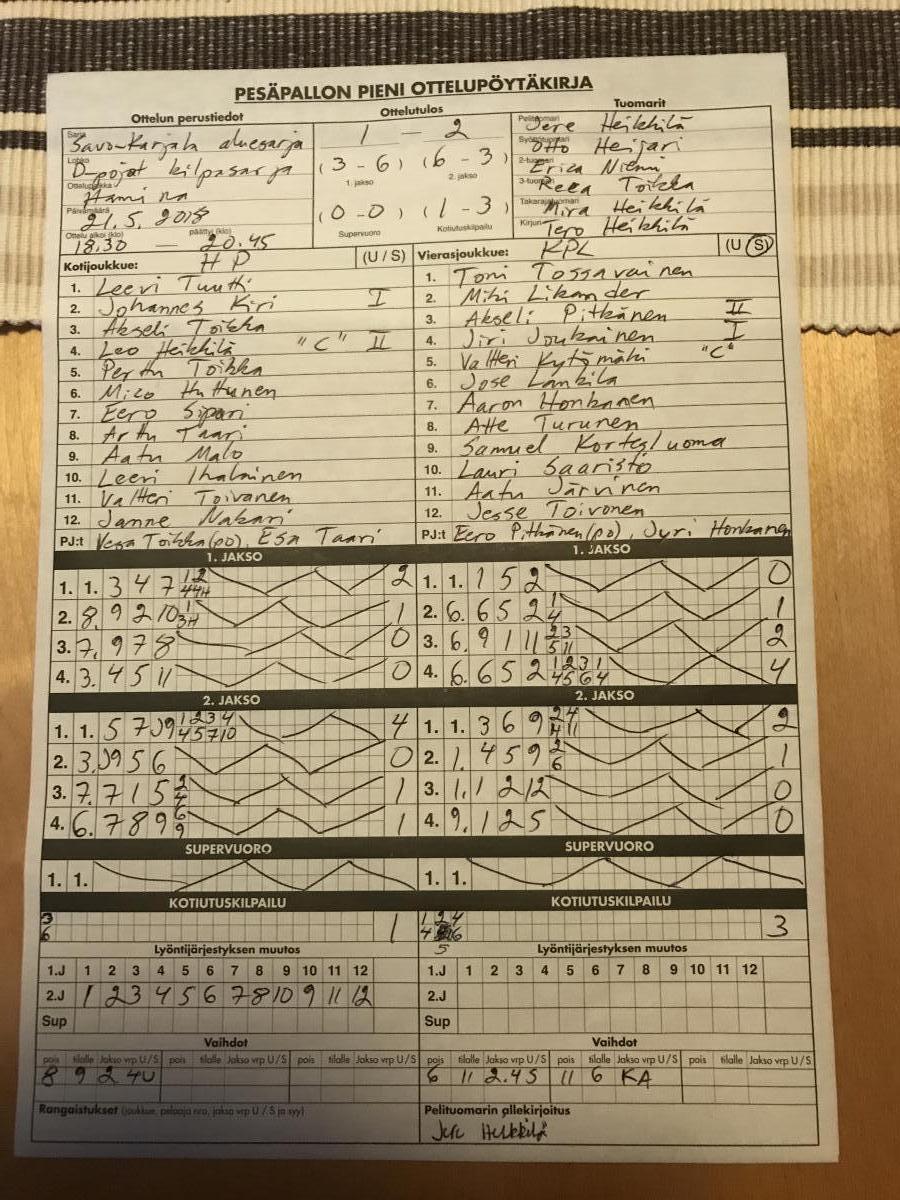 PESÄPALLON PIENI OTTELUPÖYTÄKIRJA
Ottelun perustiedot Ottelutulos Tuomarit
Sarja Savo-Karjala aluesarja 1 — 2 Pelituomari Jere Heikkilä
Lohko D-pojat kilpasarja (3-6) (6-3) Syöttötuomari Otto Heijari
1. jakso 2. jakso 2-tuomari Erica Niemi
Ottelupaikka Hamina 3-tuomari Reea Toikka
Päivämäärä 21.5.2018 (0-0) (1-3) Takarajatuomari Mira Heikkilä
Ottelu alkoi (klo) päättyi (klo) Supervuoro Kotiutuskilpailu Kirjuri Tero Heikkilä
18.30 — 20.45
Kotijoukkue: HP (U / S) Vierasjoukkue: KPL (U / S)
1. Leevi Tuutti 1. Toni Tossavainen
2. Johannes Kiri I 2. Miki Likander
3. Akseli Toikka 3. Akseli Pitkänen II
4. Leo Heikkilä "C" II 4. Jiri Joukainen I
5. Perttu Toikka 5. Valtteri Kytömäki "C"
6. Mico Huttunen 6. Jose Lankila
7. Eero Sipari 7. Aaron Honkanen
8. Arttu Taari 8. Atte Turunen
9. Aatu Malo 9. Samuel Kortesluoma
10. Leevi Ihalainen 10. Lauri Saaristo
11. Valtteri Toivanen 11. Aatu Järvinen
12. Janne Nakari 12. Jesse Toivonen
PJ:t Vesa Toikka(po), Esa Taari PJ:t Eero Pitkänen(po), Jyri Honkanen
1. JAKSO 1. JAKSO
1. 1. 3 4 7 2 1. 1. 1 5 2 0
2. 8. 9 2 10 1 2. 6. 6 5 2 1 4 1
3. 7. 9 7 8 0 3. 6. 9 1 11 2 3 5 11 2
4. 3. 4 5 11 0 4. 6. 6 5 2 1 2 3 1 4 5 6 4 4
2. JAKSO 2. JAKSO
1. 1. 5 7 9 1 2 3 4 4 5 7 10 4 1. 1. 3 6 9 2 4 4 11 2
2. 3. 9 5 6 0 2. 1. 4 5 9 2 6 1
3. 7. 7 1 5 2 4 1 3. 1. 1 2 12 0
4. 6. 7 8 9 6 9 1 4. 9. 1 2 5 0
SUPERVUORO SUPERVUORO
1. 1. 1. 1.
KOTIUTUSKILPAILU KOTIUTUSKILPAILU
3 6 1 1 2 4 4 5 6 3
Lyöntijärjestyksen muutos Lyöntijärjestyksen muutos
1.J 1 2 3 4 5 6 7 8 9 10 11 12 1.J 1 2 3 4 5 6 7 8 9 10 11 12
2.J 1 2 3 4 5 6 7 8 10 9 11 12 2.J
Sup Sup
Vaihdot Vaihdot
pois tilalle Jakso vrp U/S pois tilalle Jakso vrp U/S pois tilalle Jakso vrp U/S pois tilalle Jakso vrp U/S pois tilalle Jakso vrp U/S pois tilalle Jakso vrp U/S
8 9 2 4U 6 11 2.4S 11 6 KA
Rangaistukset (joukkue, pelaaja nro, jakso vrp U / S ja syy) Pelituomarin allekirjoitus
Jere Heikkilä